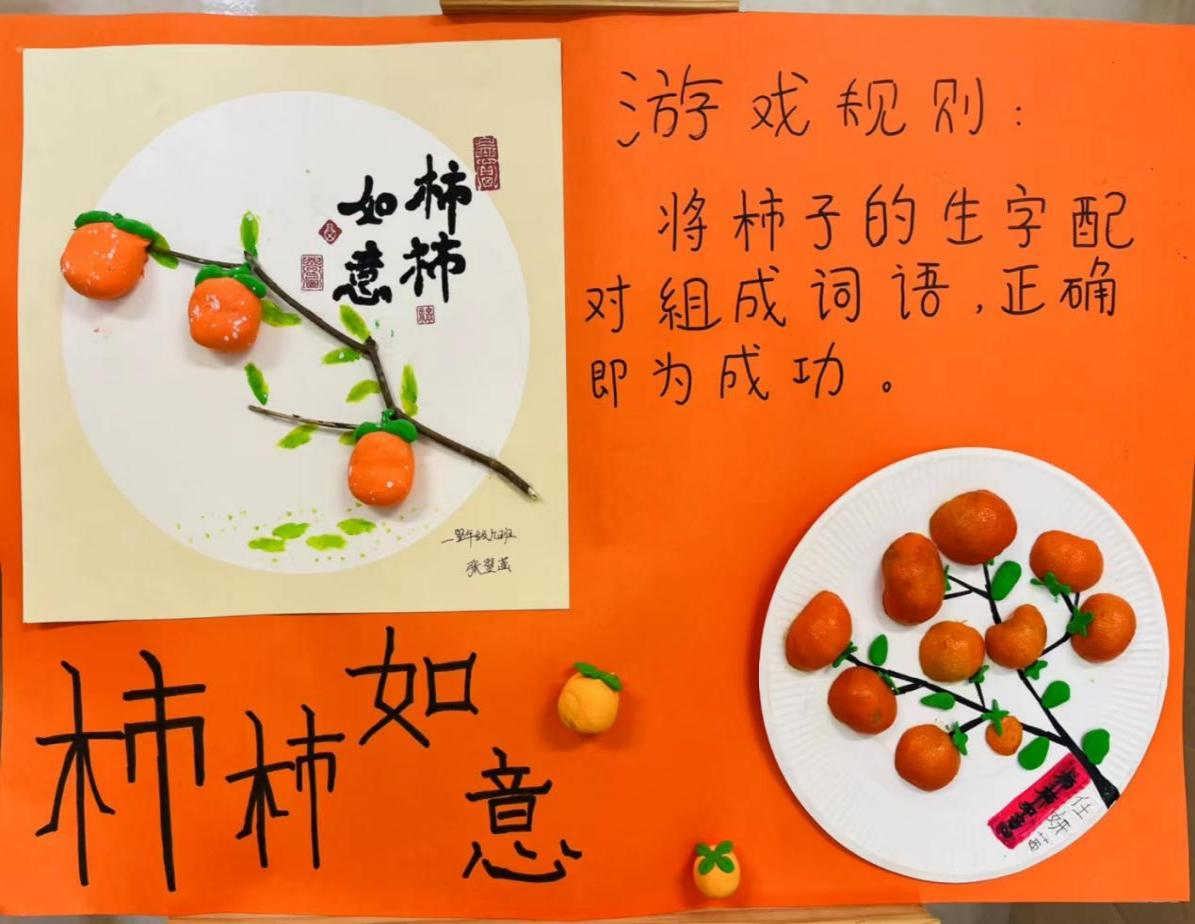 柿柿
如意
一年级九班
游戏规则：
将柿子的生字配
对組成词语，正确
即为成功。
柿柿如意
柿柿如意
任妍